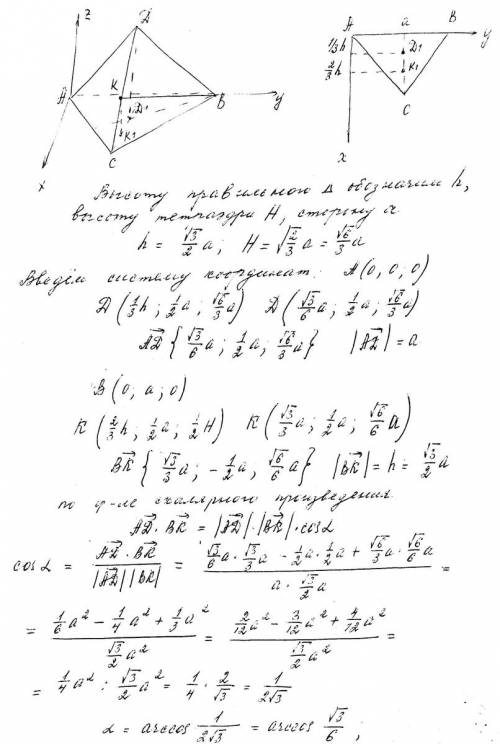 z
Д
A
K
Д₁
B
y
K₁
C
x
A
a
B
y
1/3h
Д₁
2/3h
K₁
C
x
Высоту правильного Δ обозначим h,
высоту тетраэдра H, сторону a
h = √3/2 a; H = √(2/3) a = √6/3 a
Введём систему координат: A(0, 0, 0)
Д(1/3 h; 1/2 a; √6/3 a) Д(√3/6 a; 1/2 a; √6/3 a)
AД {√3/6 a; 1/2 a; √6/3 a} |AД| = a
B(0; a; 0)
K(2/3 h; 1/2 a; 1/2 H) K(√3/3 a; 1/2 a; √6/6 a)
BK {√3/3 a; -1/2 a, √6/6 a} |BK| = h = √3/2 a
по ф-ле скалярного произведения
AД · BK = |AД|·|BK|·cosα
cosα = AД · BK / |AД||BK| = (√3/6 a · √3/3 a - 1/2 a · 1/2 a + √6/3 a · √6/6 a) / (a · √3/2 a) =
= (1/6 a² - 1/4 a² + 1/3 a²) / (√3/2 a²) = (2/12 a² - 3/12 a² + 4/12 a²) / (√3/2 a²) =
= 1/4 a² : √3/2 a² = 1/4 · 2/√3 = 1/2√3
α = arccos 1/2√3 = arccos √3/6 ;